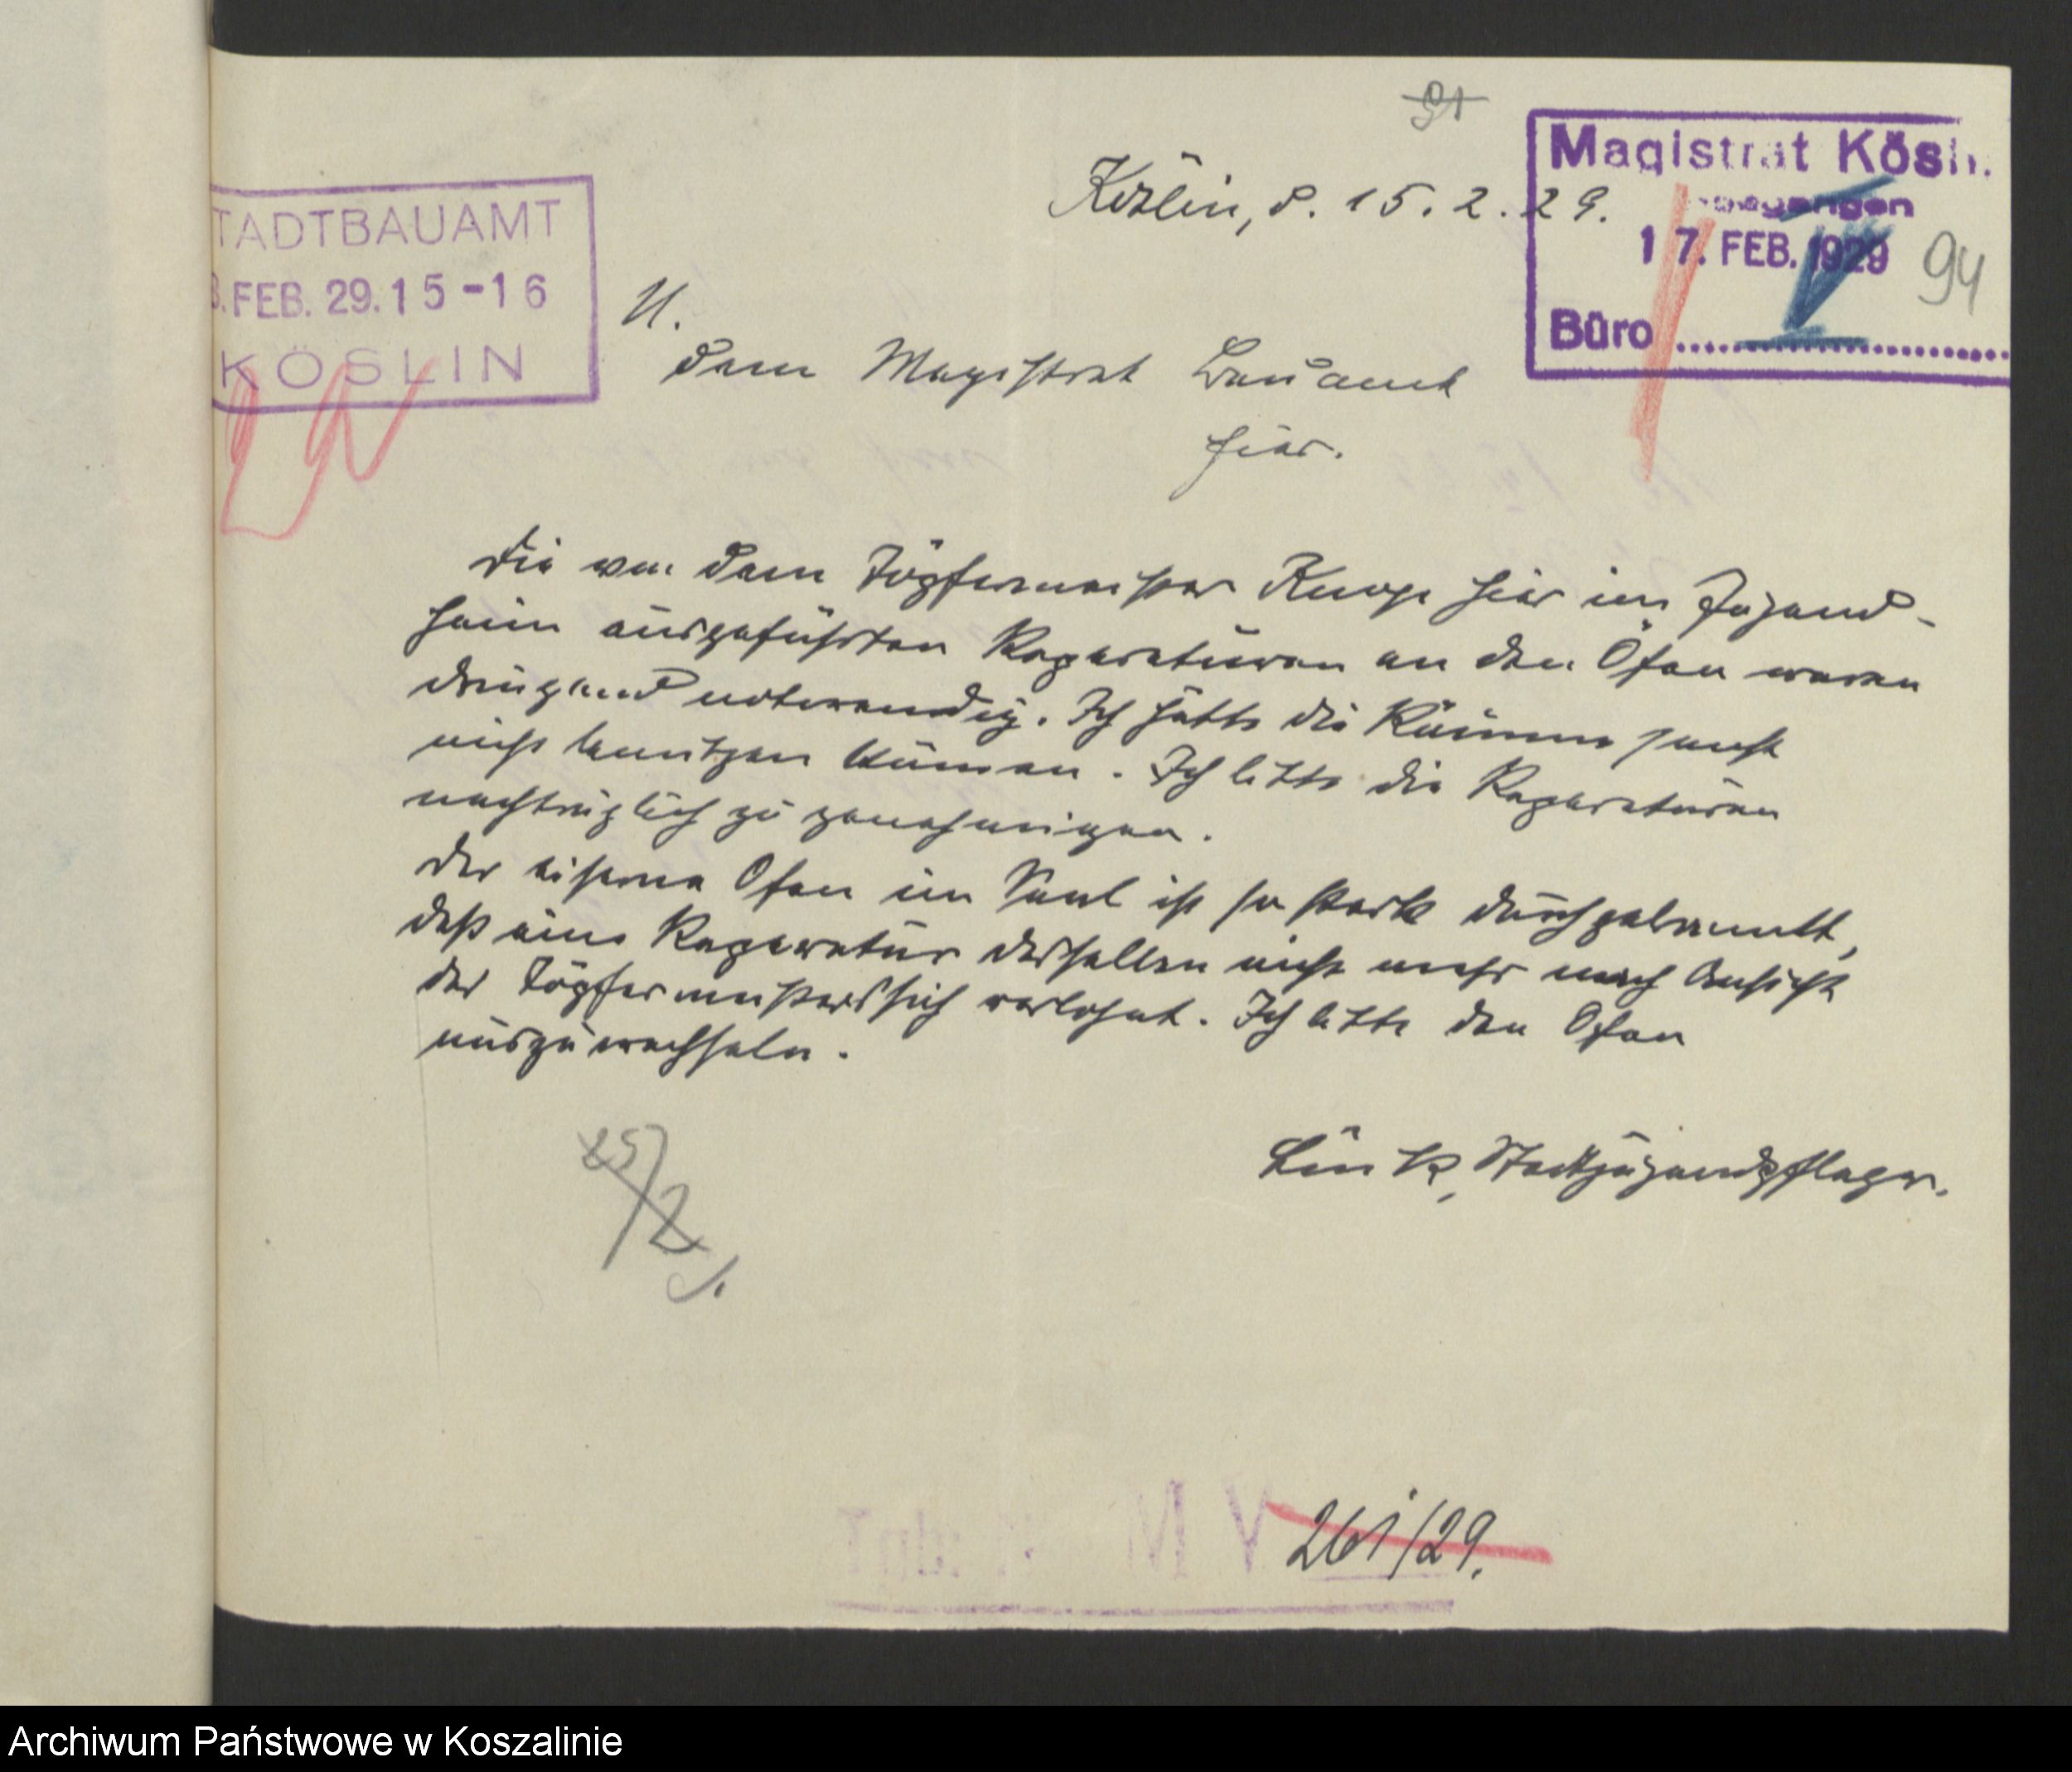 91
Köslin, d. 15.2.29.
Magistrat Köslin
Eingegangen
17. FEB. 1929
94
Büro
STADTBAUAMT
8. FEB. 29.15-16
KÖSLIN
U.
dem Magistrat Bauamt
hier.
Die von dem Töpfermeister Knop hier im Jugend-
heim ausgeführten Reparaturen an den Öfen waren
dringend notwendig. Ich hätte die Räume sonst
nicht benutzen können. Ich bitte die Reparaturen
nachträglich zu genehmigen.
Der eiserne Ofen im Saal ist so stark durchgebrannt,
daß eine Reparatur desselben nicht mehr nach Ansicht
des Töpfermeisters sich verlohnt. Ich bitte den Ofen
auszuwechseln.
Link, Stadtjugendpfleger.
25/2
261/29.
Archiwum Państwowe w Koszalinie